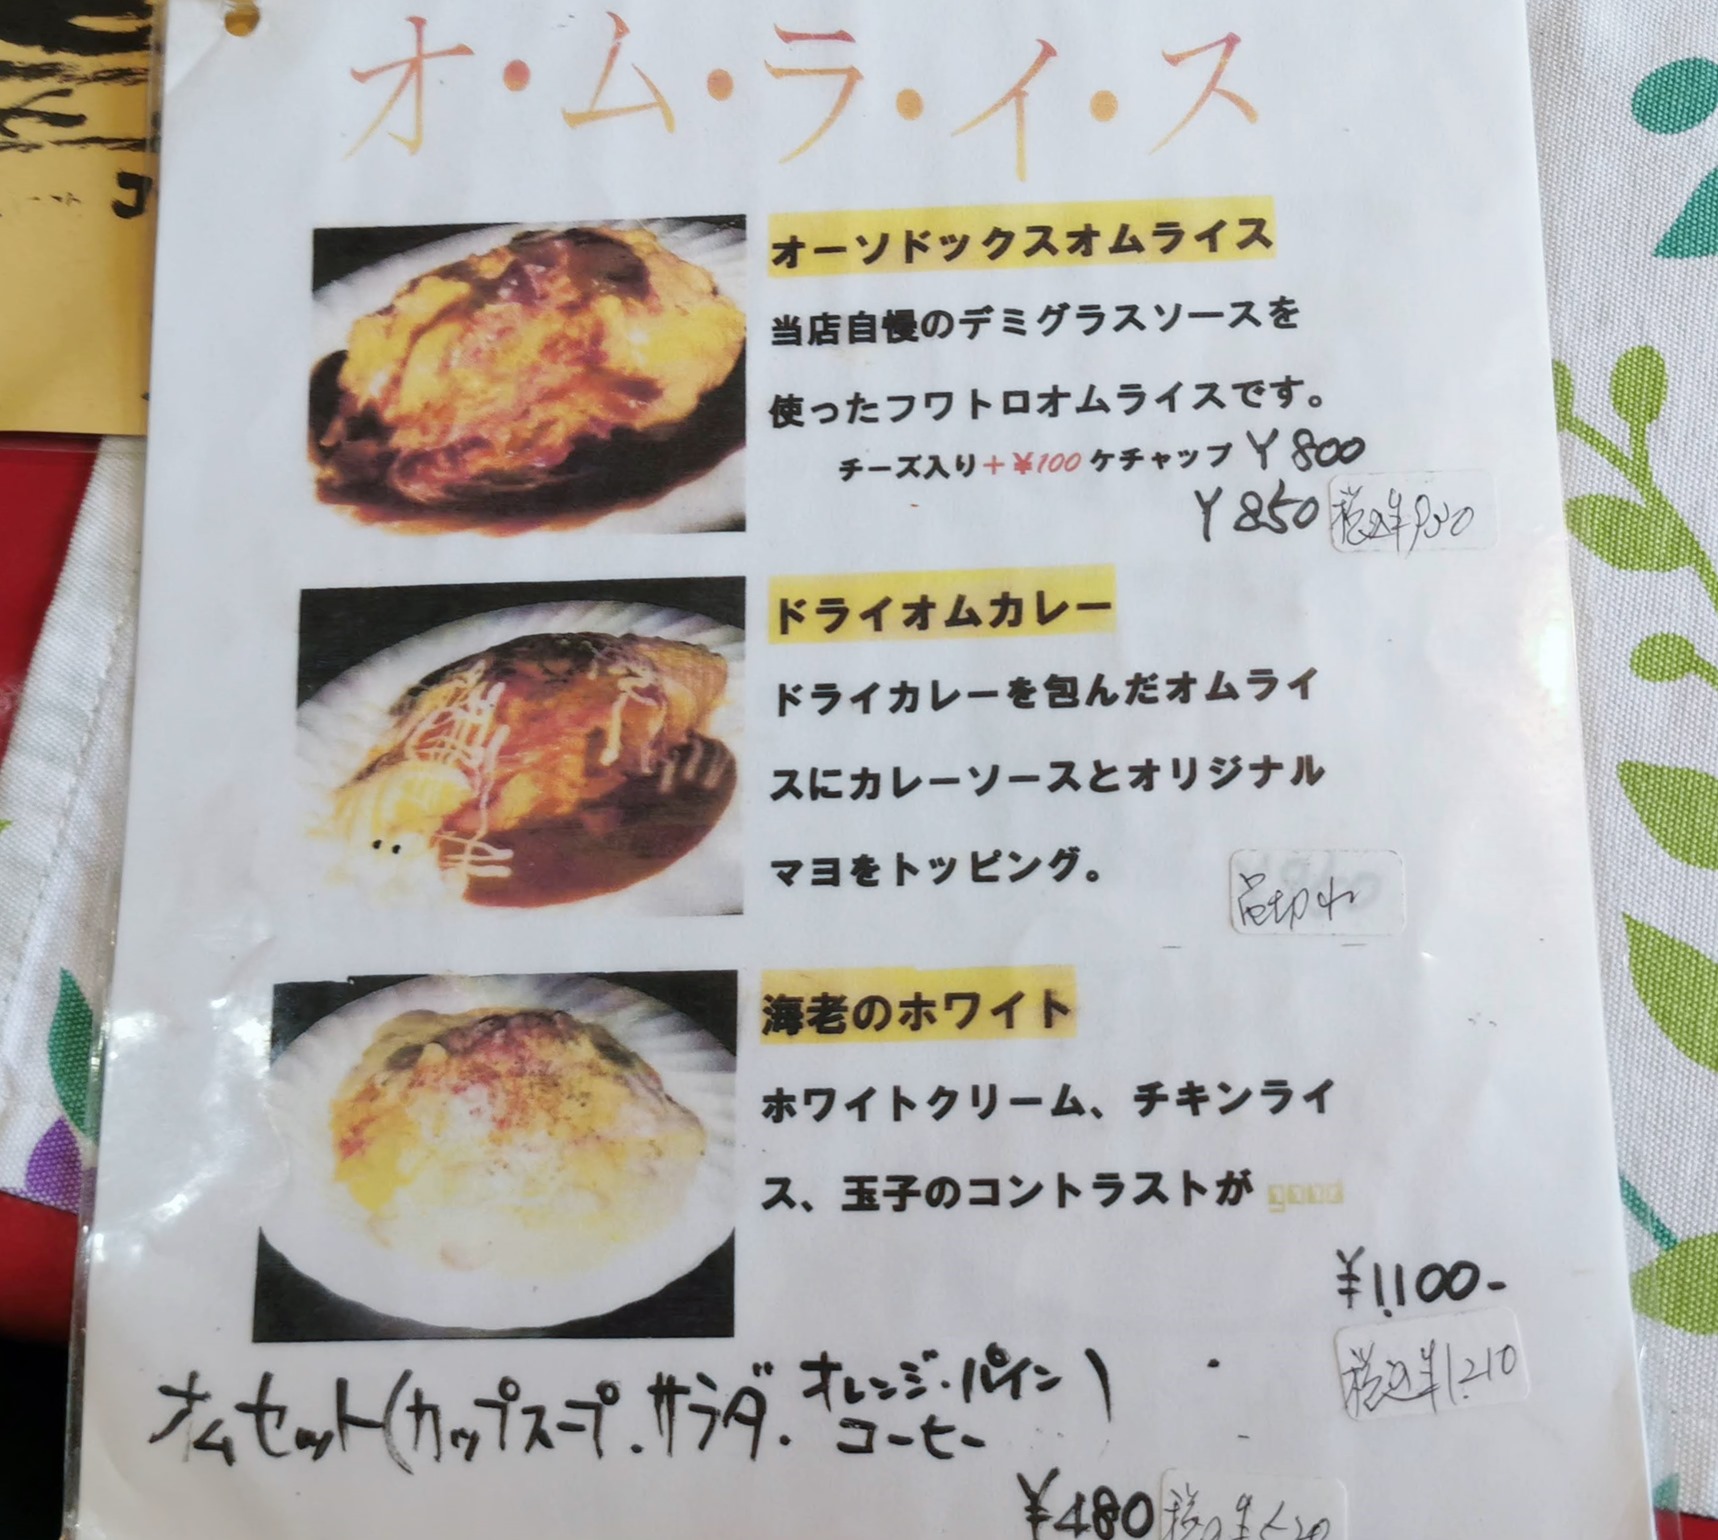 オ・ム・ラ・イ・ス
オーソドックスオムライス
当店自慢のデミグラスソースを
使ったフワトロオムライスです。
チーズ入り+¥100 ケチャップ ¥800
¥850
税込¥930
ドライオムカレー
ドライカレーを包んだオムライ
スにカレーソースとオリジナル
マヨをトッピング。
品切れ
海老のホワイト
ホワイトクリーム、チキンライ
ス、玉子のコントラストが good
¥1,100-
税込¥1,210
オムセット(カップスープ.サラダ.オレンジ.パイン
コーヒー)
¥480